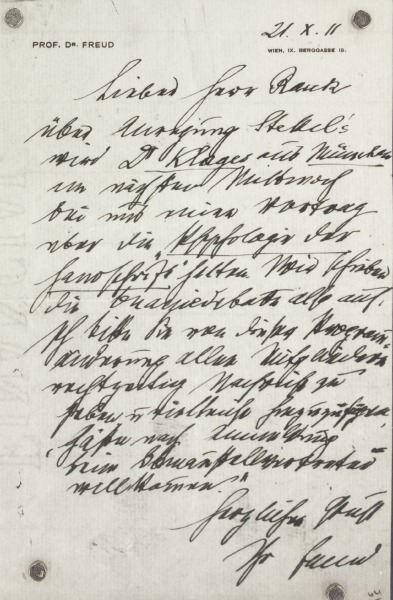 21. X. 11
PROF. DR. FREUD
WIEN, IX. BERGGASSE 19.
Lieber Herr Rank
über Anregung Stekel's
wird Dr Klages aus München
am nächsten Mittwoch
bei uns einen Vortrag
über die "Psychologie der
Handschrift" halten. Wir schieben
die Onaniedebatte also auf.
Ich bitte Sie von dieser Program-
änderung allen Mitgliedern
rechtzeitig Nachricht zu
geben u vielleicht hinzuzufügen,
"Gäste nach Anmeldung
beim
willkommen."
Herzlichen Gruß
Ihr Freud